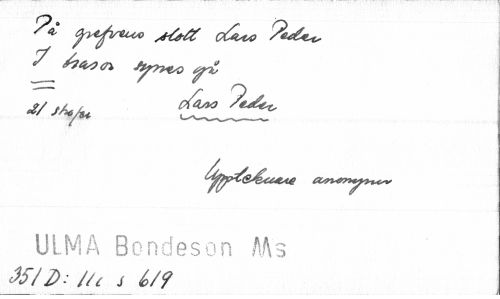 På grefvens slott Lars Peder
I trasor synes gå
21 strofer
Lars Peder
Upptecknare anonym
ULMA Bondeson Ms
351 D: III s 619